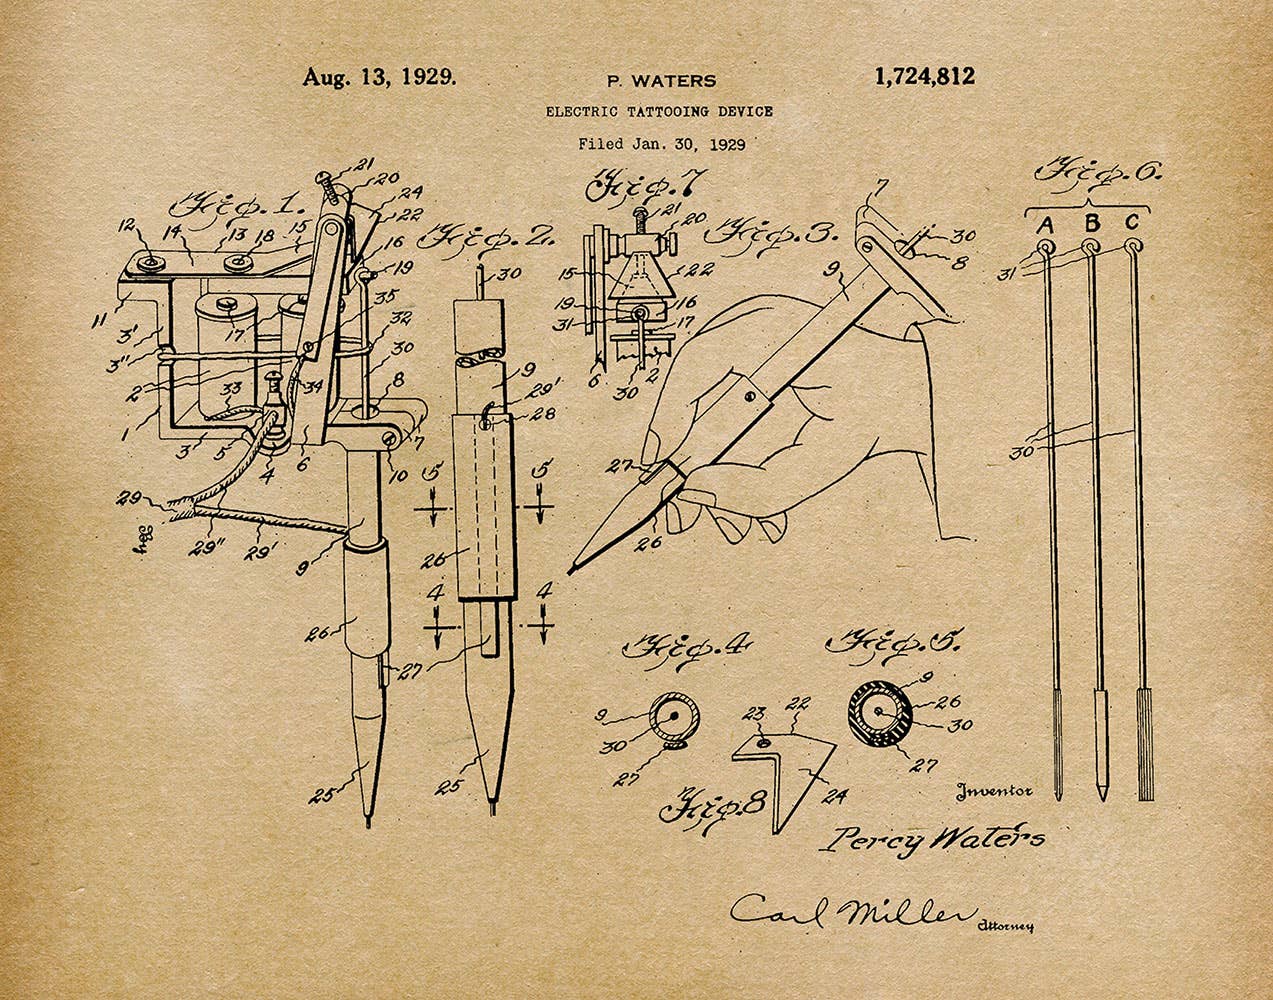 Aug. 13, 1929.
P. WATERS
1,724,812
ELECTRIC TATTOOING DEVICE
Filed Jan. 30, 1929
Fig. 1.
21
20
24
22
12
14
13
18
15
16
19
11
3'
3"
17
35
32
30
2
33
34
8
1
3
5
4
6
7
10
29
29"
29'
9
26
27
25
Fig. 2.
30
9
29'
28
5
5
26
4
4
25
Fig. 7
21
20
15
22
19
16
31
17
6
30
2
Fig. 3.
7
30
8
9
27
26
Fig. 6.
A B C
31
30
Fig. 4
9
30
27
Fig. 5.
9
26
30
27
23
22
24
Fig. 8
Inventor
Percy Waters
Carl Miller
Attorney